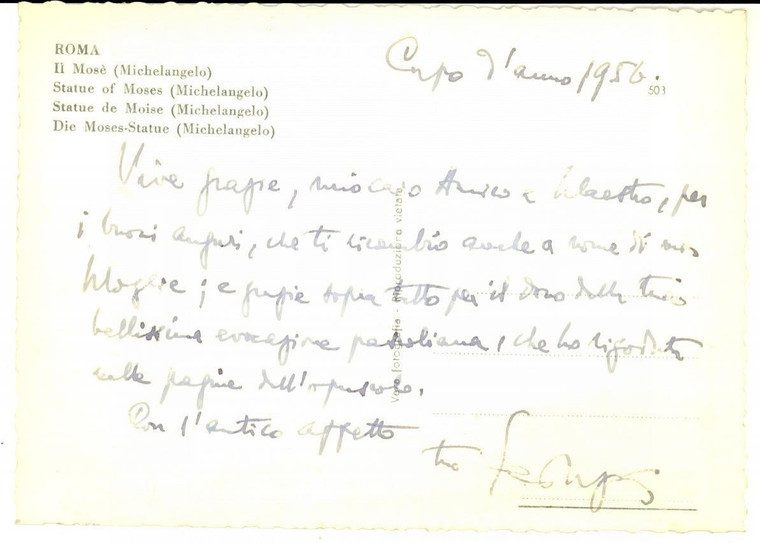 ROMA
Il Mosè (Michelangelo)
Statue of Moses (Michelangelo)
Statue de Moise (Michelangelo)
Die Moses-Statue (Michelangelo)
Capo d'anno 1956.
503
Vive grazie, mio caro Amico e Maestro, per
i buoni auguri, che ti ricambio anche a nome di mia
Moglie; e grazie sopra tutto per il dono della tua
bellissima evocazione pascoliana, che ho rigoduta
nelle pagine dell'opuscolo.
Con l'antico affetto
tuo
Vera fotografia - Riproduzione vietata